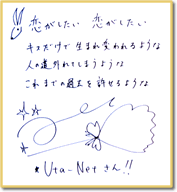 恋がしたい 恋がしたい
キスだけで生まれ変われるような
人の道外れてしまうような
これまでの過去を許せるような
* Uta-Netさん!!